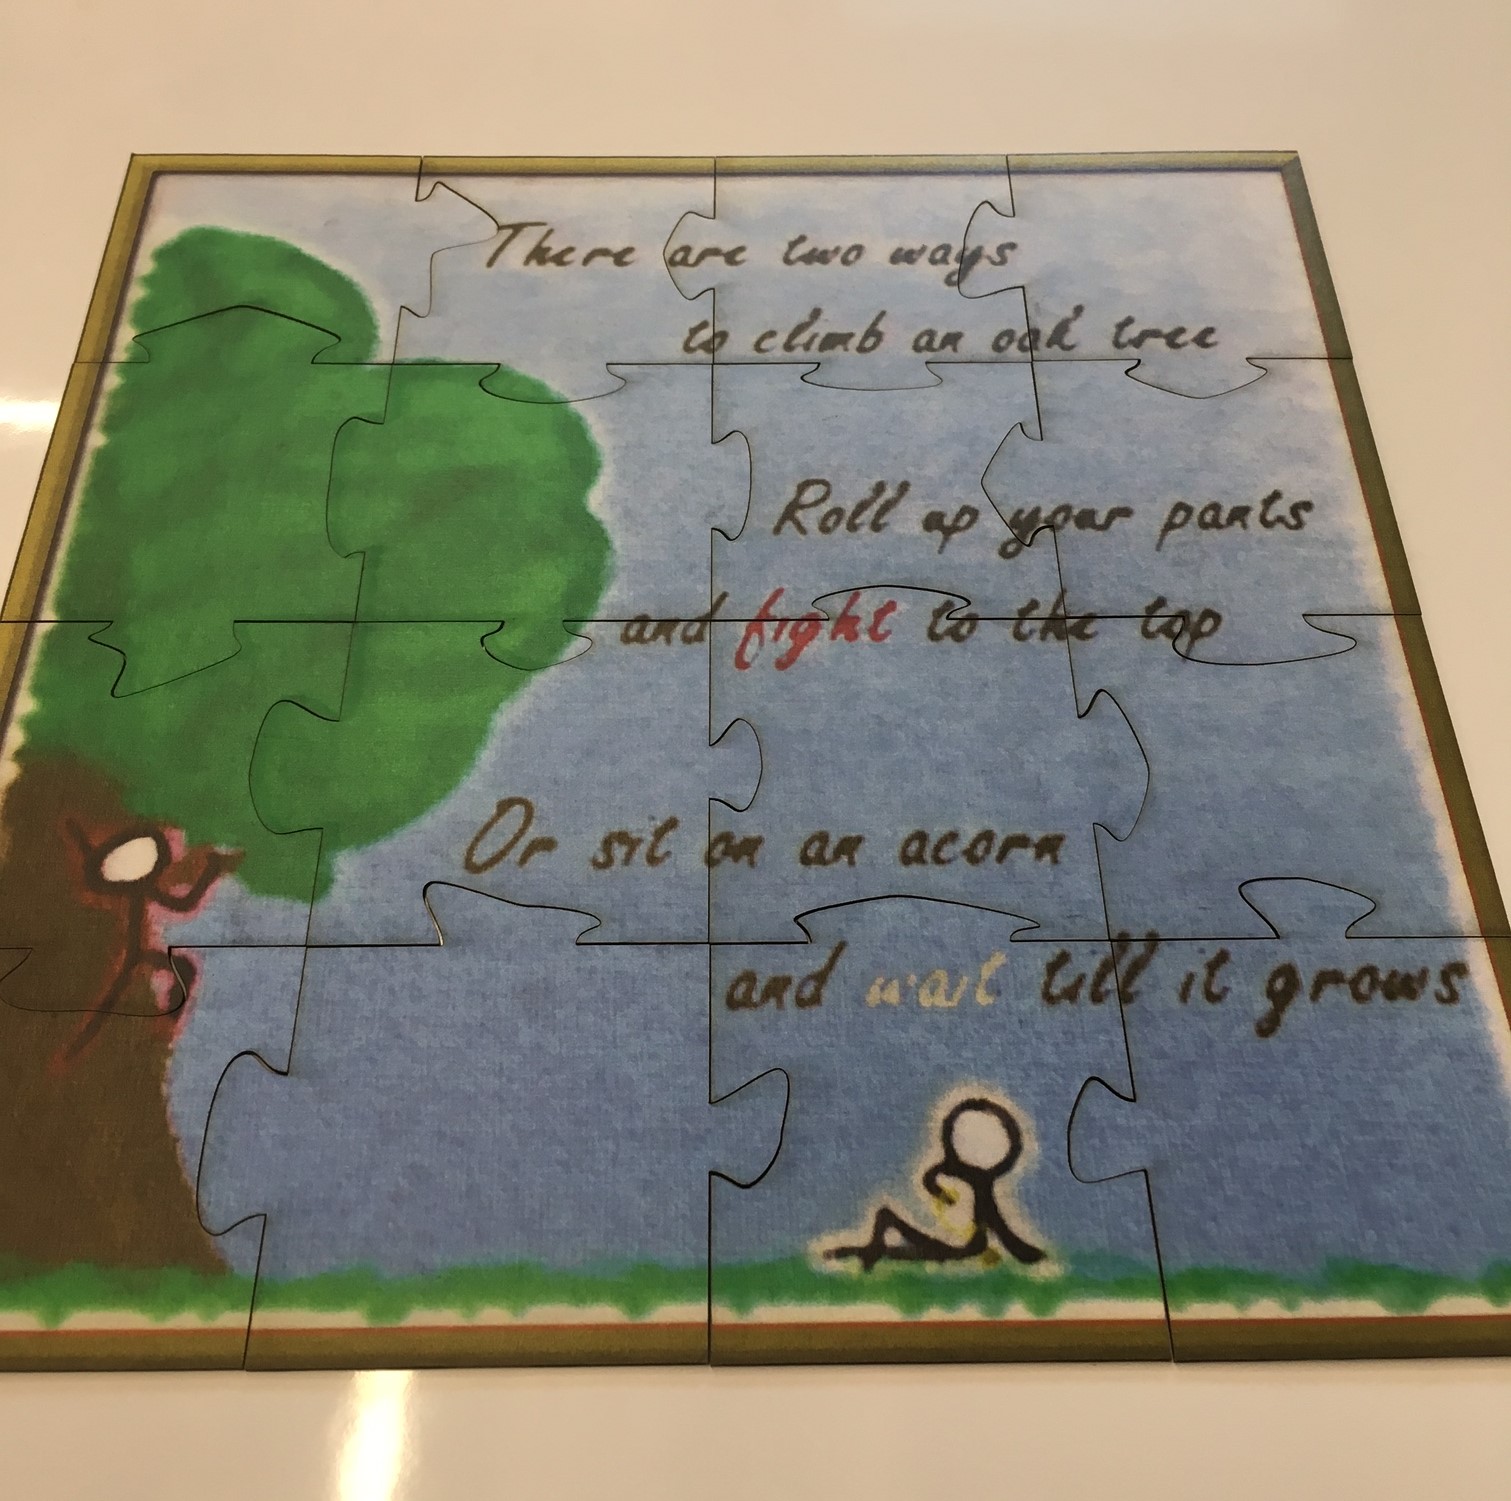 There are two ways
to climb an oak tree
Roll up your pants
and fight to the top
Or sit on an acorn
and wait till it grows